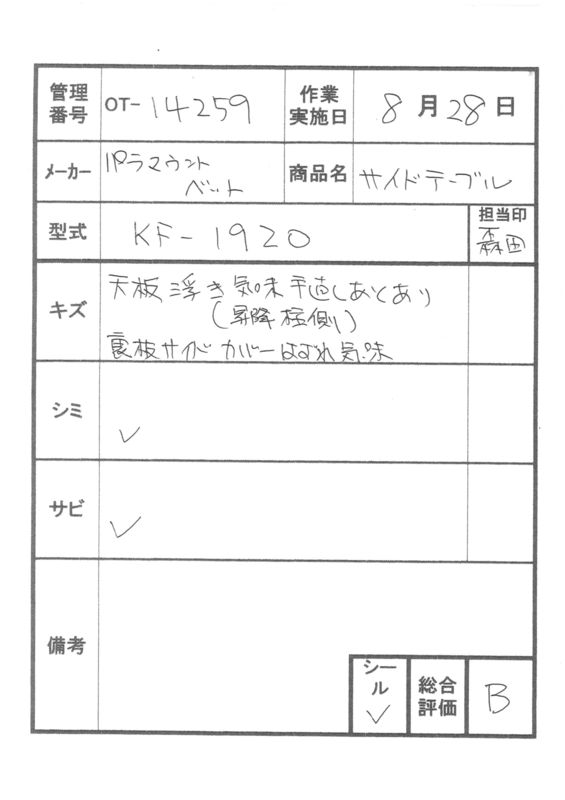 管理番号 OT-14259 作業実施日 8月28日
メーカー パラマウントベット 商品名 サイドテーブル
型式 KF-1920 担当印 森田
キズ 天板浮き気味 手直しあとあり
(昇降柱側)
裏板サイドカバーはずれ気味
シミ ✓
サビ ✓
備考
シール ✓ 総合評価 B